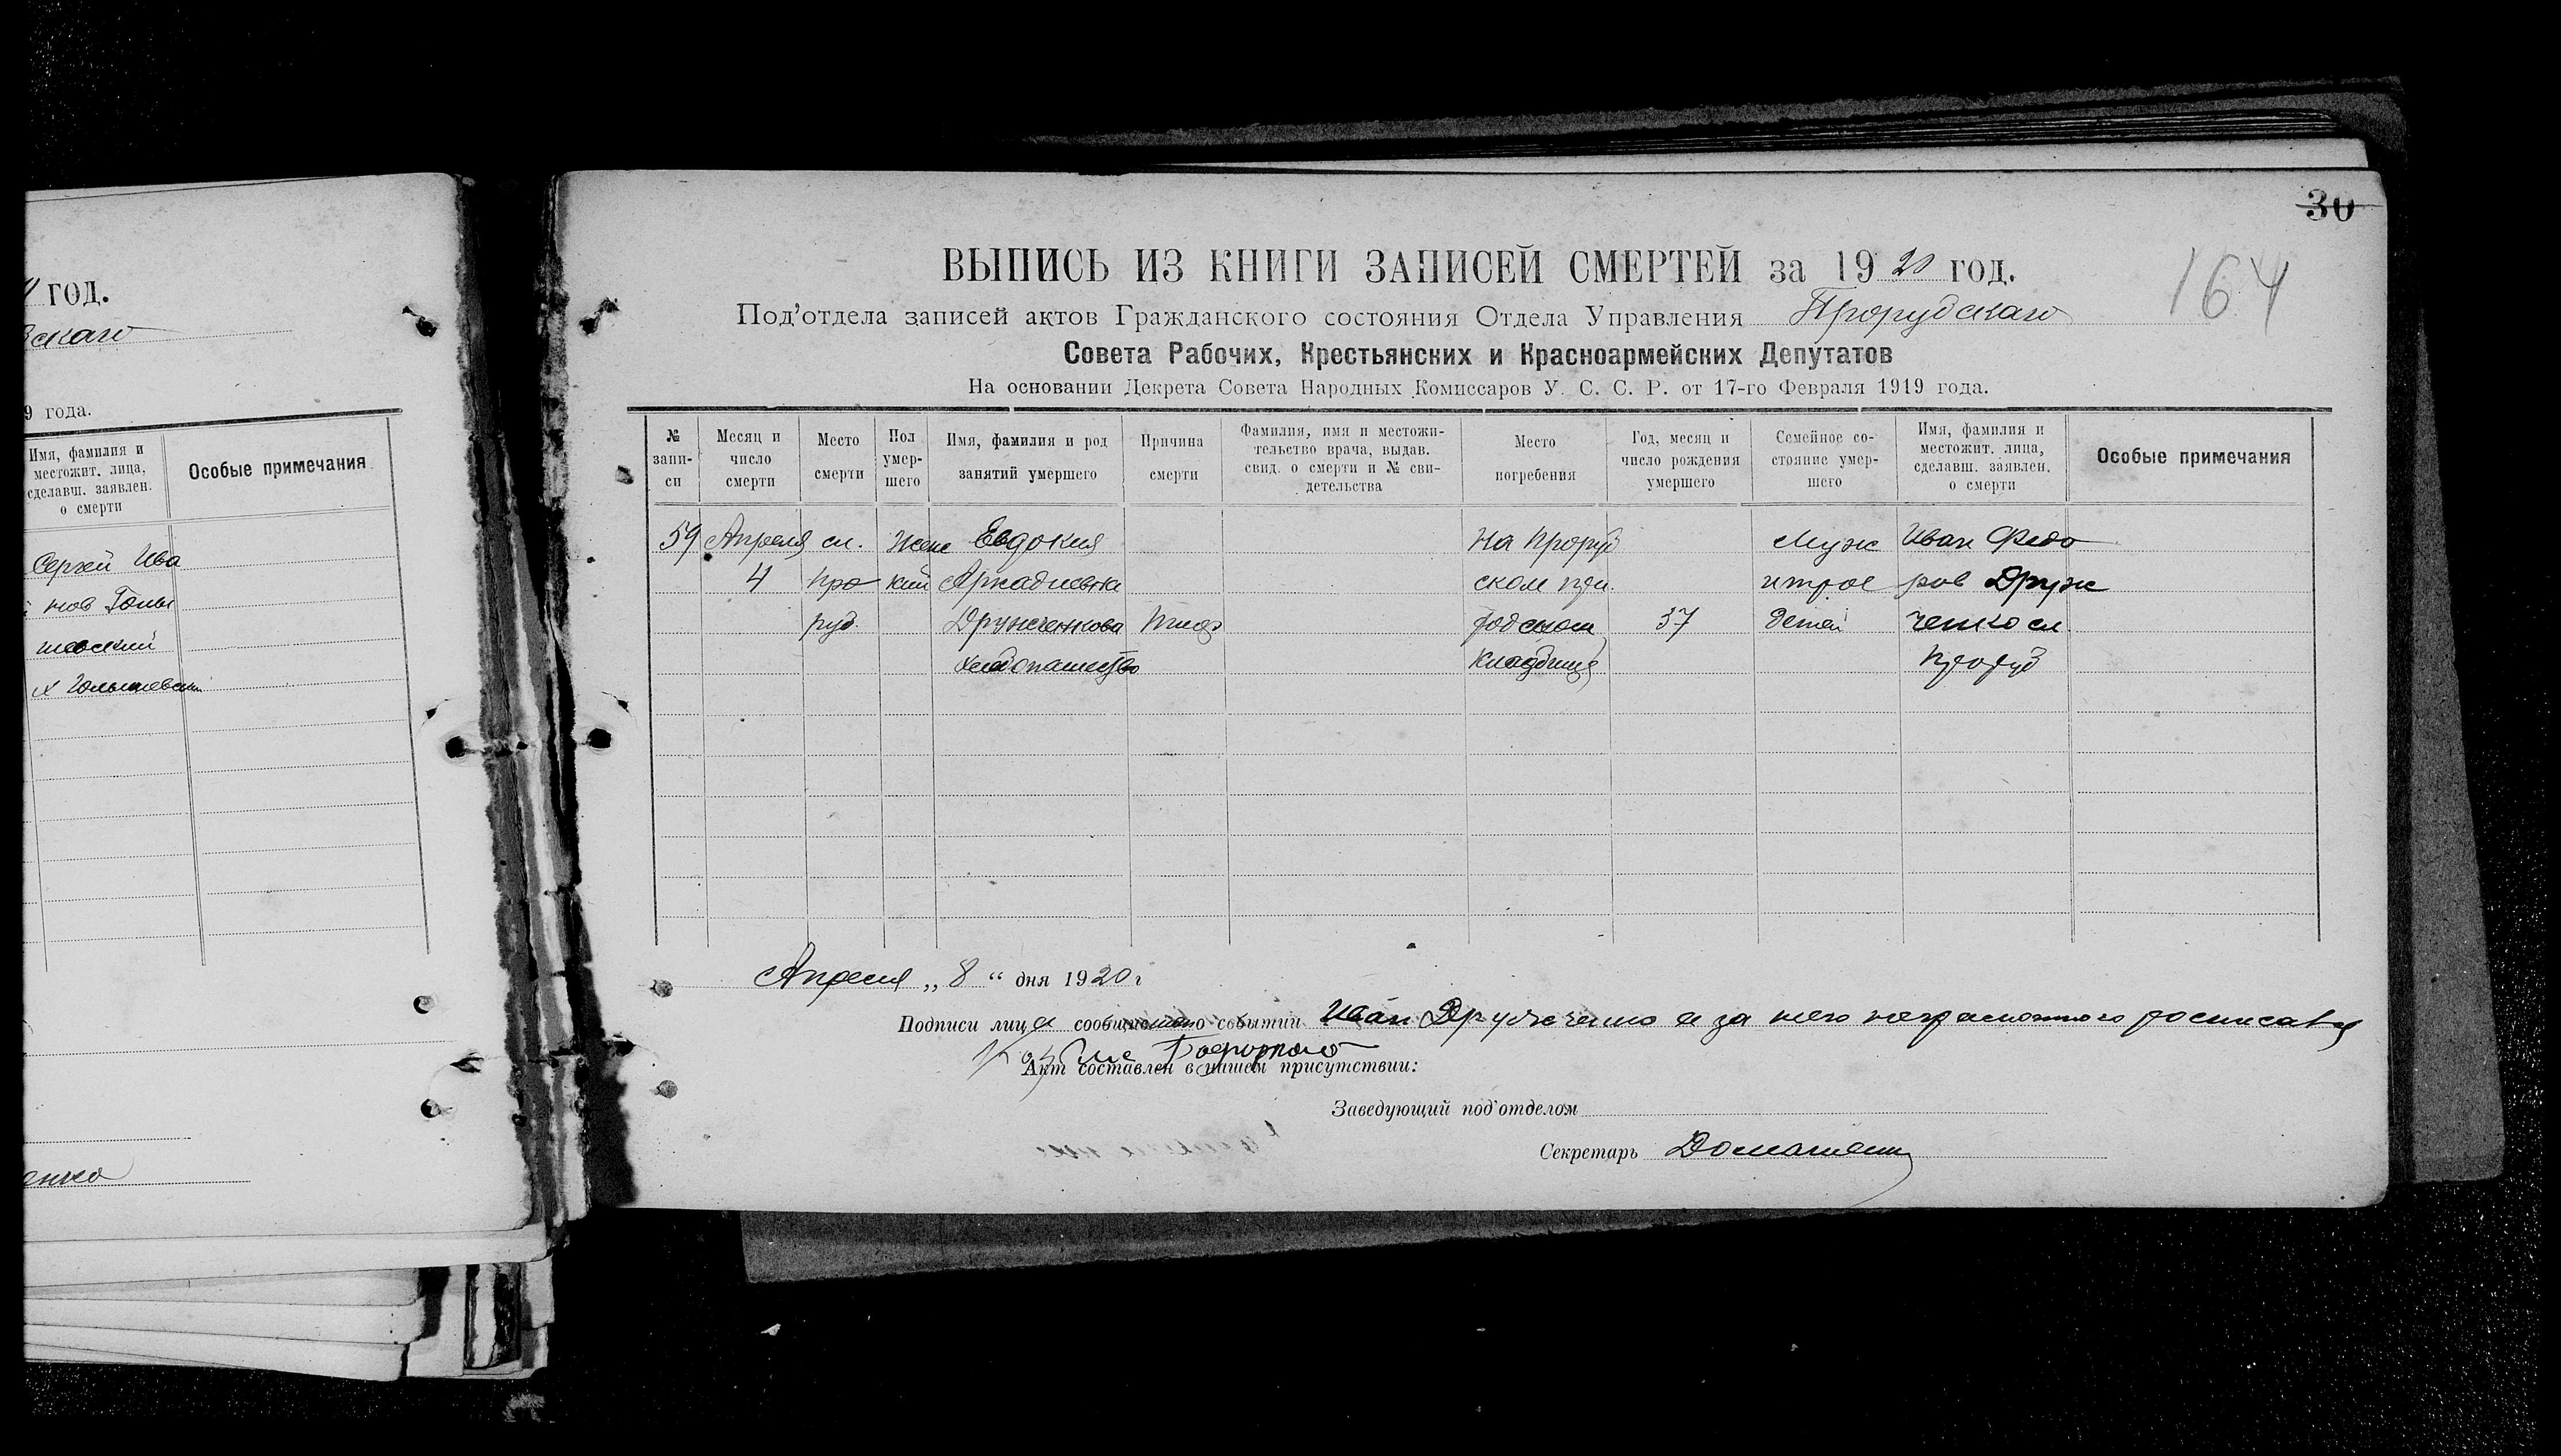 год.
скаго
9 года.
Имя, фамилия и
местожит. лица,
сделавш. заявлен.
о смерти
Особые примечания
Сергей Ива
нов
енко
30
164
ВЫПИСЬ ИЗ КНИГИ ЗАПИСЕЙ СМЕРТЕЙ за 1920 год.
Под'отдела записей актов Гражданского состояния Отдела Управления Прорубскаго
Совета Рабочих, Крестьянских и Красноармейских Депутатов
На основании Декрета Совета Народных Комиссаров У. С. С. Р. от 17-го Февраля 1919 года.
№
запи-
си
Месяц и
число
смерти
Место
смерти
Пол
умер-
шего
Имя, фамилия и род
занятий умершего
Причина
смерти
Фамилия, имя и местожи-
тельство врача, выдав.
свид. о смерти и № сви-
детельства
Место
погребения
Год, месяц и
число рождения
умершего
Семейное со-
стояние умер-
шего
Имя, фамилия и
местожит. лица,
сделавш. заявлен.
о смерти
Особые примечания
59 Апреля сл. Женс Евдокия На Проруб Муж Иван Федо
4 Про кий Аркадиевна ском при. и трое ров Друж
руб. Дружченкова Тиф родском 37 детей ченко сл.
хлебопашество кладбище Проруб
Апреля „8“ дня 1920 г
Подписи лица сообщившего событии Иван Дружченко а за него неграмотного росписався
Акт составлен в нашем присутствии:
Заведующий под'отделом
Секретарь